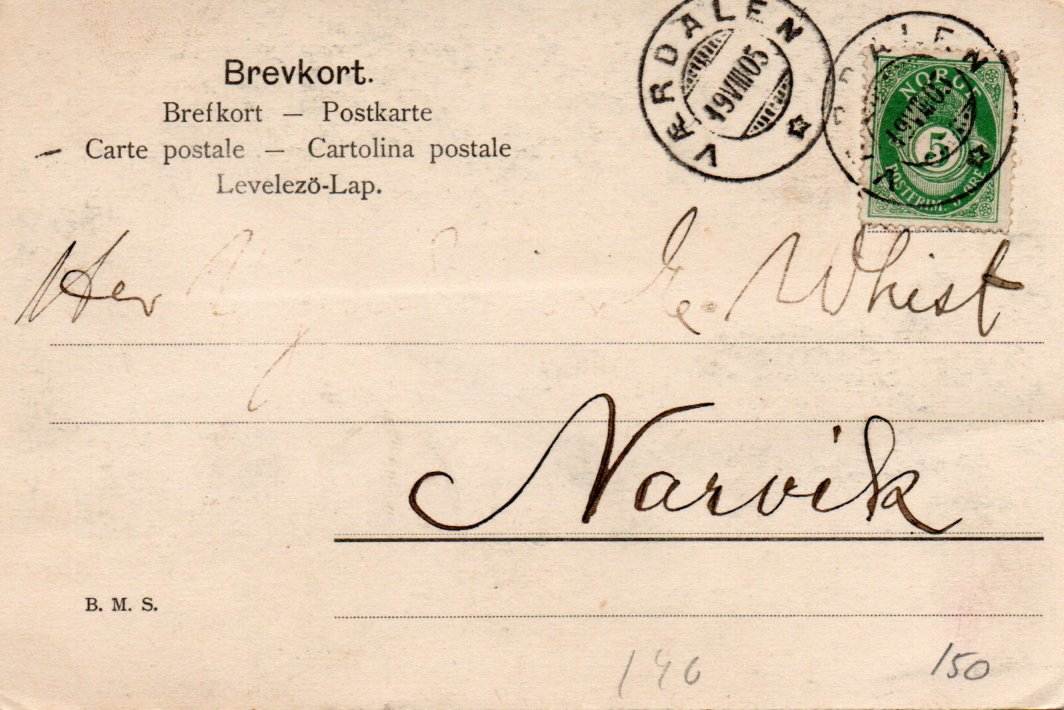 Brevkort.
Brefkort — Postkarte
Carte postale — Cartolina postale
Levelező-Lap.
VÆRDALEN
19 VIII 05
VÆRDALEN
19 VIII 05
NORGE
5
POSTFRIM. 5 ØRE
Her E. Whist
Narvik
B. M. S.
146
150